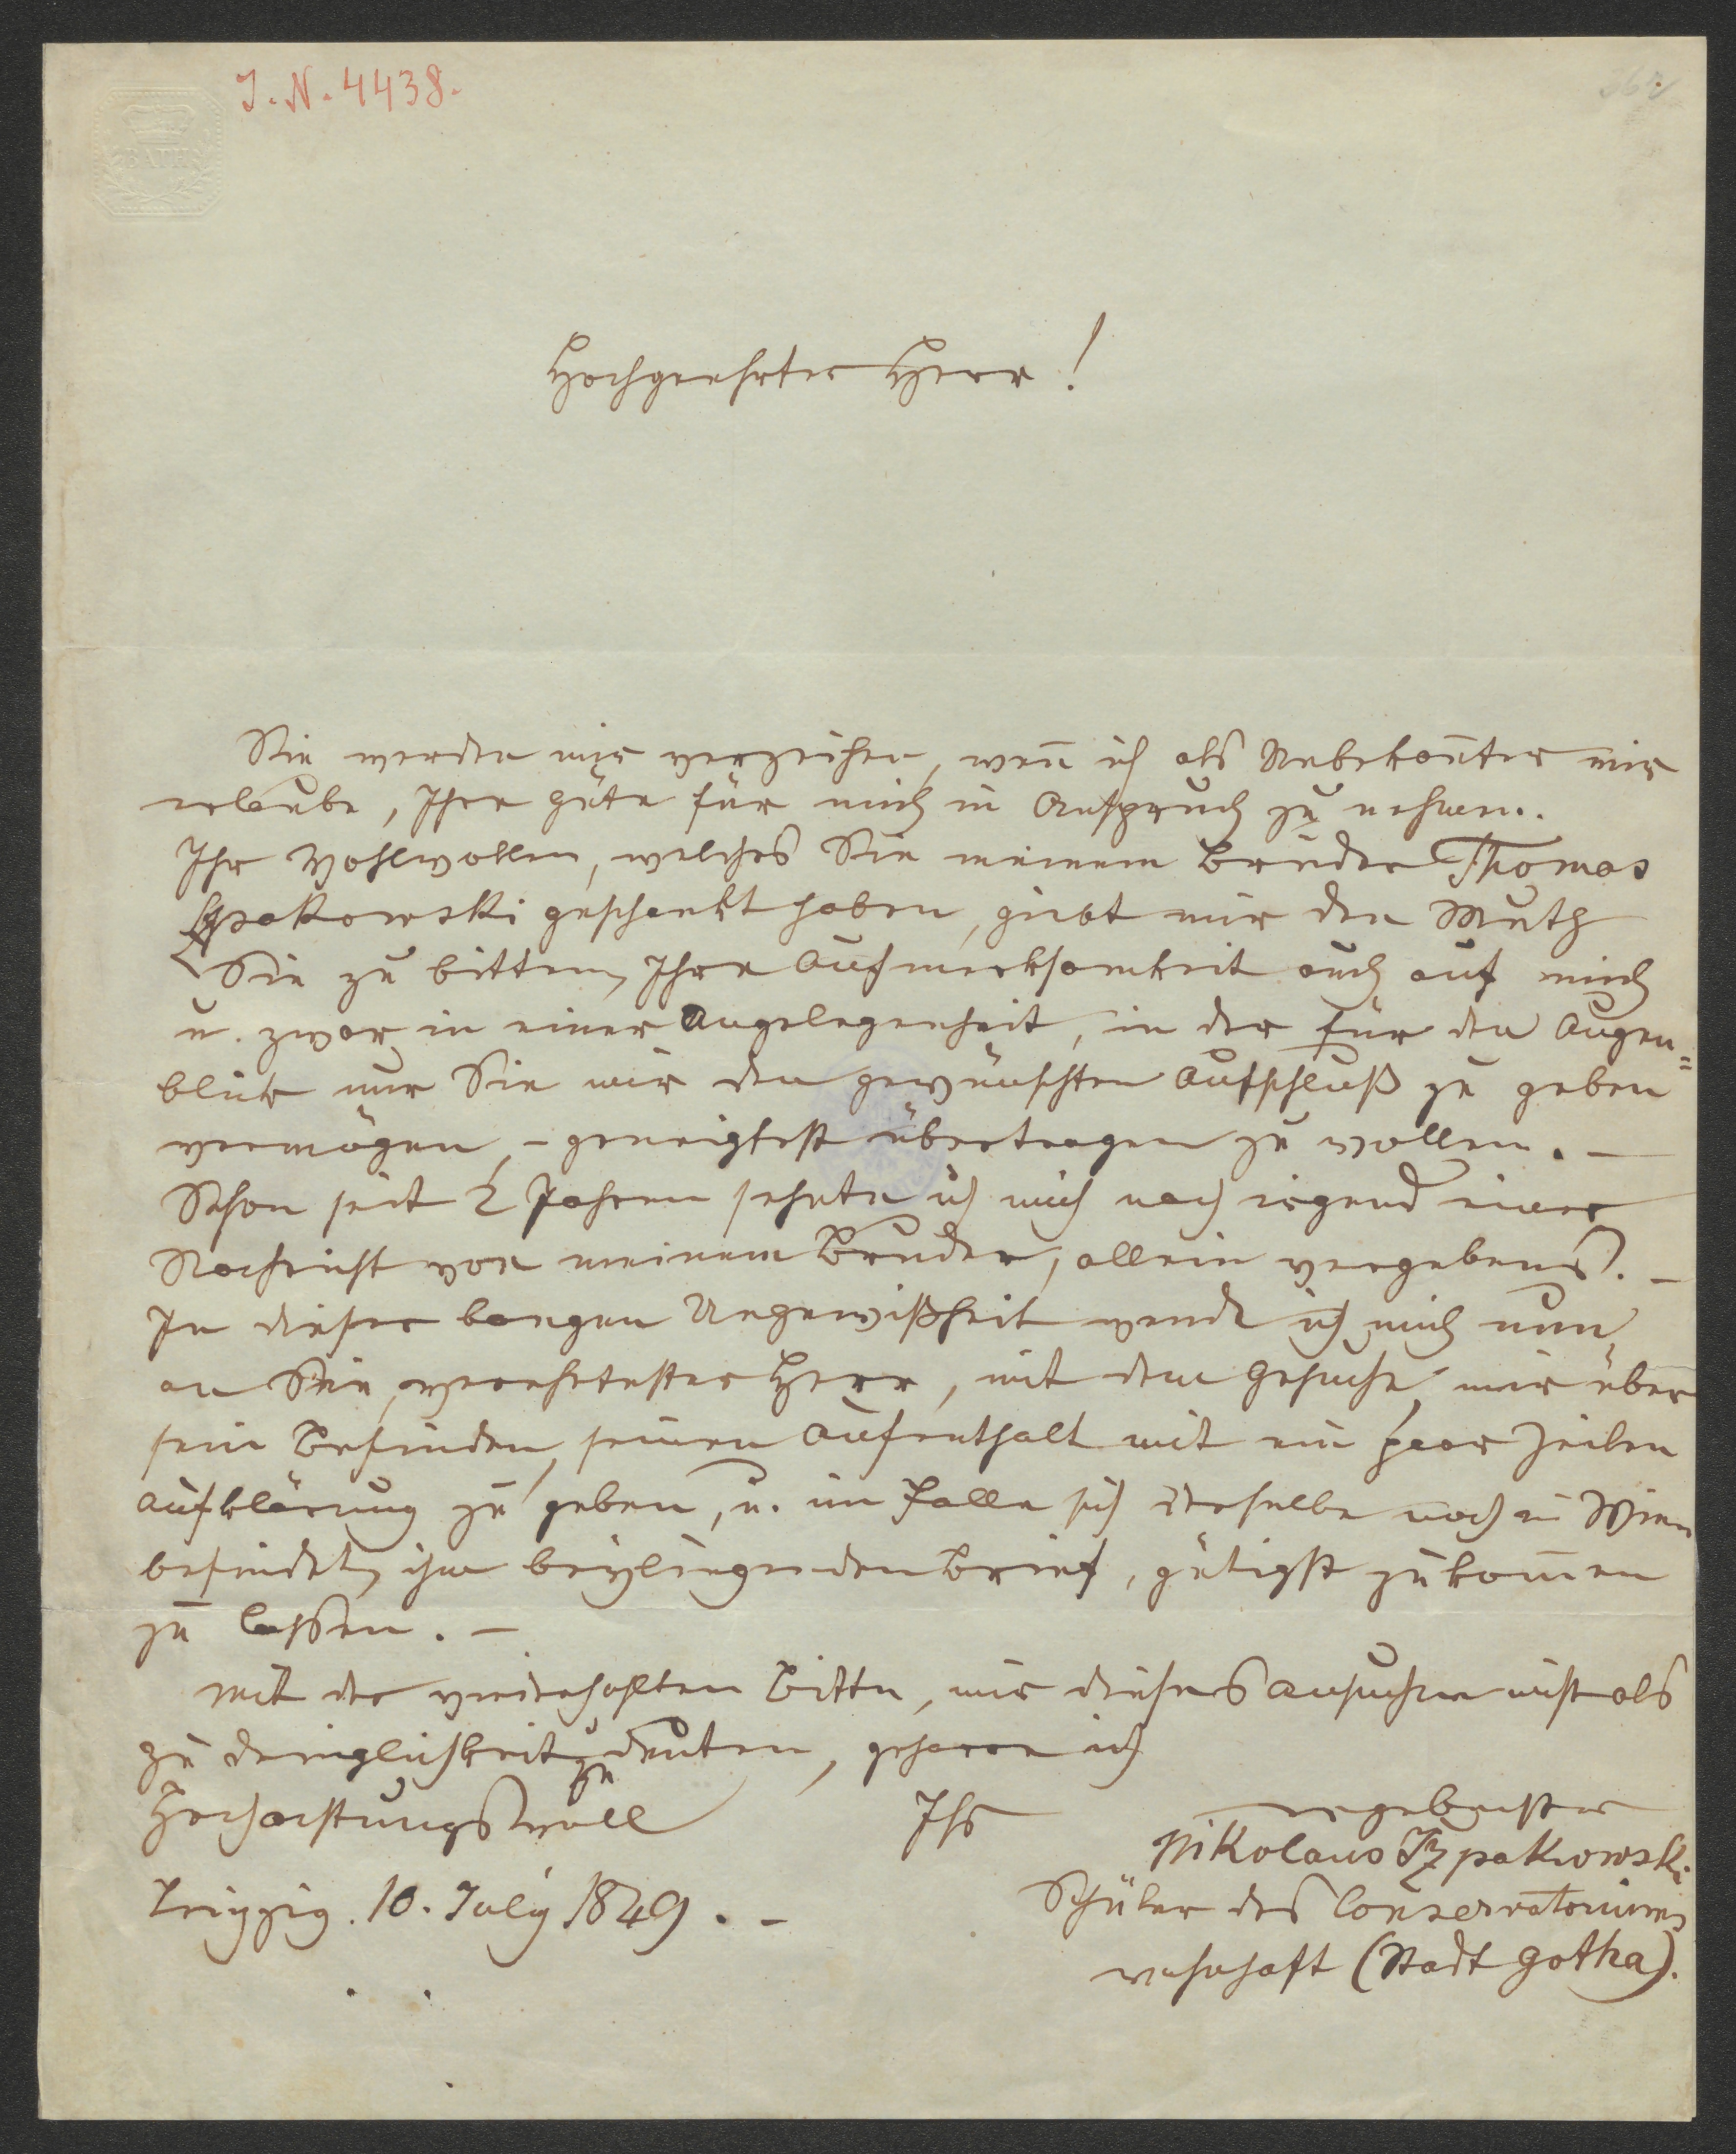 J. N. 4438.
362
BATH
Hochgeehrter Herr!
Sie werden mir verzeihen, weñ ich als Unbekañter mir
erlaube, Ihre Güte für mich in Anspruch zu nehmen.
Ihr Wohlwollen, welches Sie meinem Bruder Thomas
geschenkt haben, giebt mir den Muth
Sie zu bitten, Ihre Aufmerksamkeit auch auf mich
u. zwar in einer Angelegenheit, in der für den Augen=
blick nur Sie mir den gewünschten Aufschluß zu geben
vermögen, – geneigtest übertragen zu wollen. –
Schon seit 2 Jahren sehnte ich mich nach irgend einer
Nachricht von meinem Bruder, allein vergebens. –
In dieser bangen Ungewißheit wende ich mich nun
an Sie, verehrtester Herr, mit dem Gesuche, mir über
sein Befinden, seinen Aufenthalt mit ein paar Zeilen
Aufklärung zu geben, u. im Falle sich derselbe noch in Wien
befindet, ihm beyliegenden Brief, gütigst zukom̄en
zu laßen. –
Mit der wiederholten Bitte, mir dieses Ansuchen nicht als
zu Dringlichkeit zu deuten, geharre ich
Hochachtungsvoll Ihr ergebenster
Nikolaus Szpakowski
Leipzig. 10. July 1849. – Schüler des Conservatoriums
wohnhaft (Stadt Gotha).